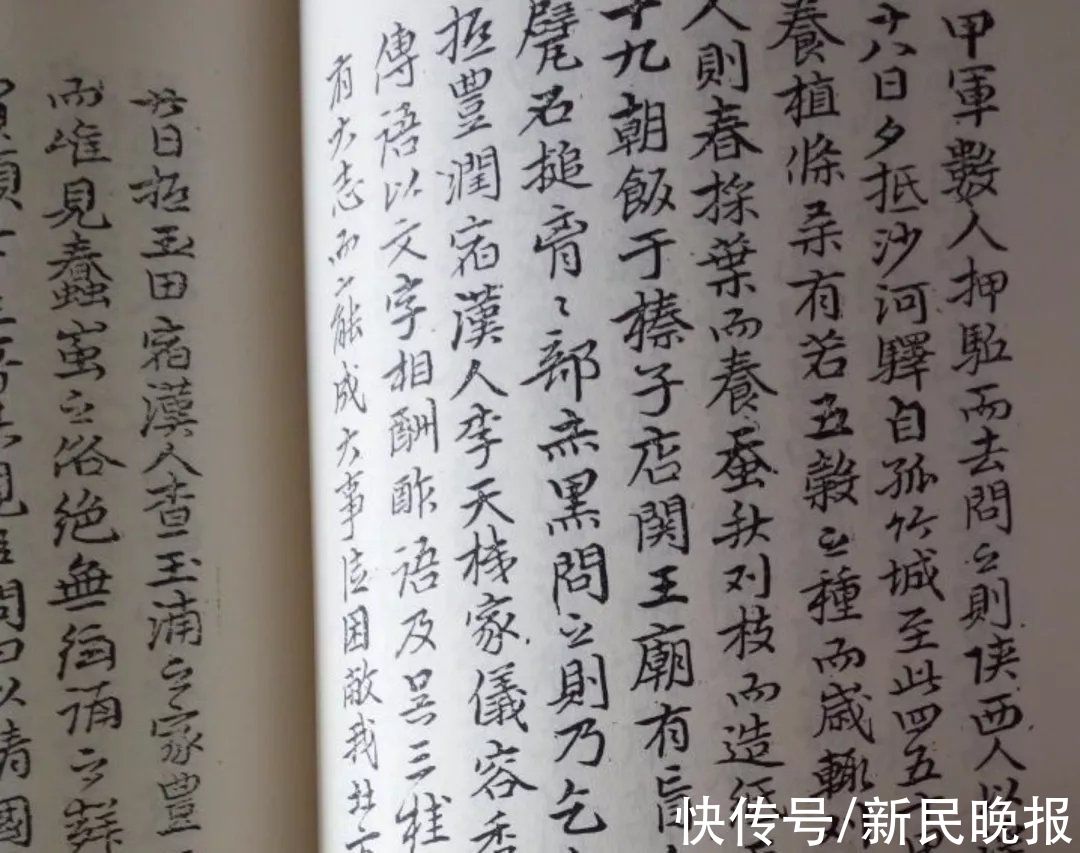 甲軍數人押駈而去問之則陜西人以
十八日夕抵沙河驛自孤竹城至此四五
養植條桑有若五穀之種而歲輙
人則春採葉而養蚕秋刈枝而造
十九朝飯于榛子店関王廟有盲
髠名搥膏〻部赤黒問之則乃乞
抵豊潤宿漢人李天㭜家儀容秀
傳語以文字相酬酢語及吳三桂
有大志而不能成大事
困敵我
廿日抵玉田宿漢人查玉浦之家豊
而唯見蠢蚩之俗絶無
誦之
問曰以清國
快传号/新民晚报